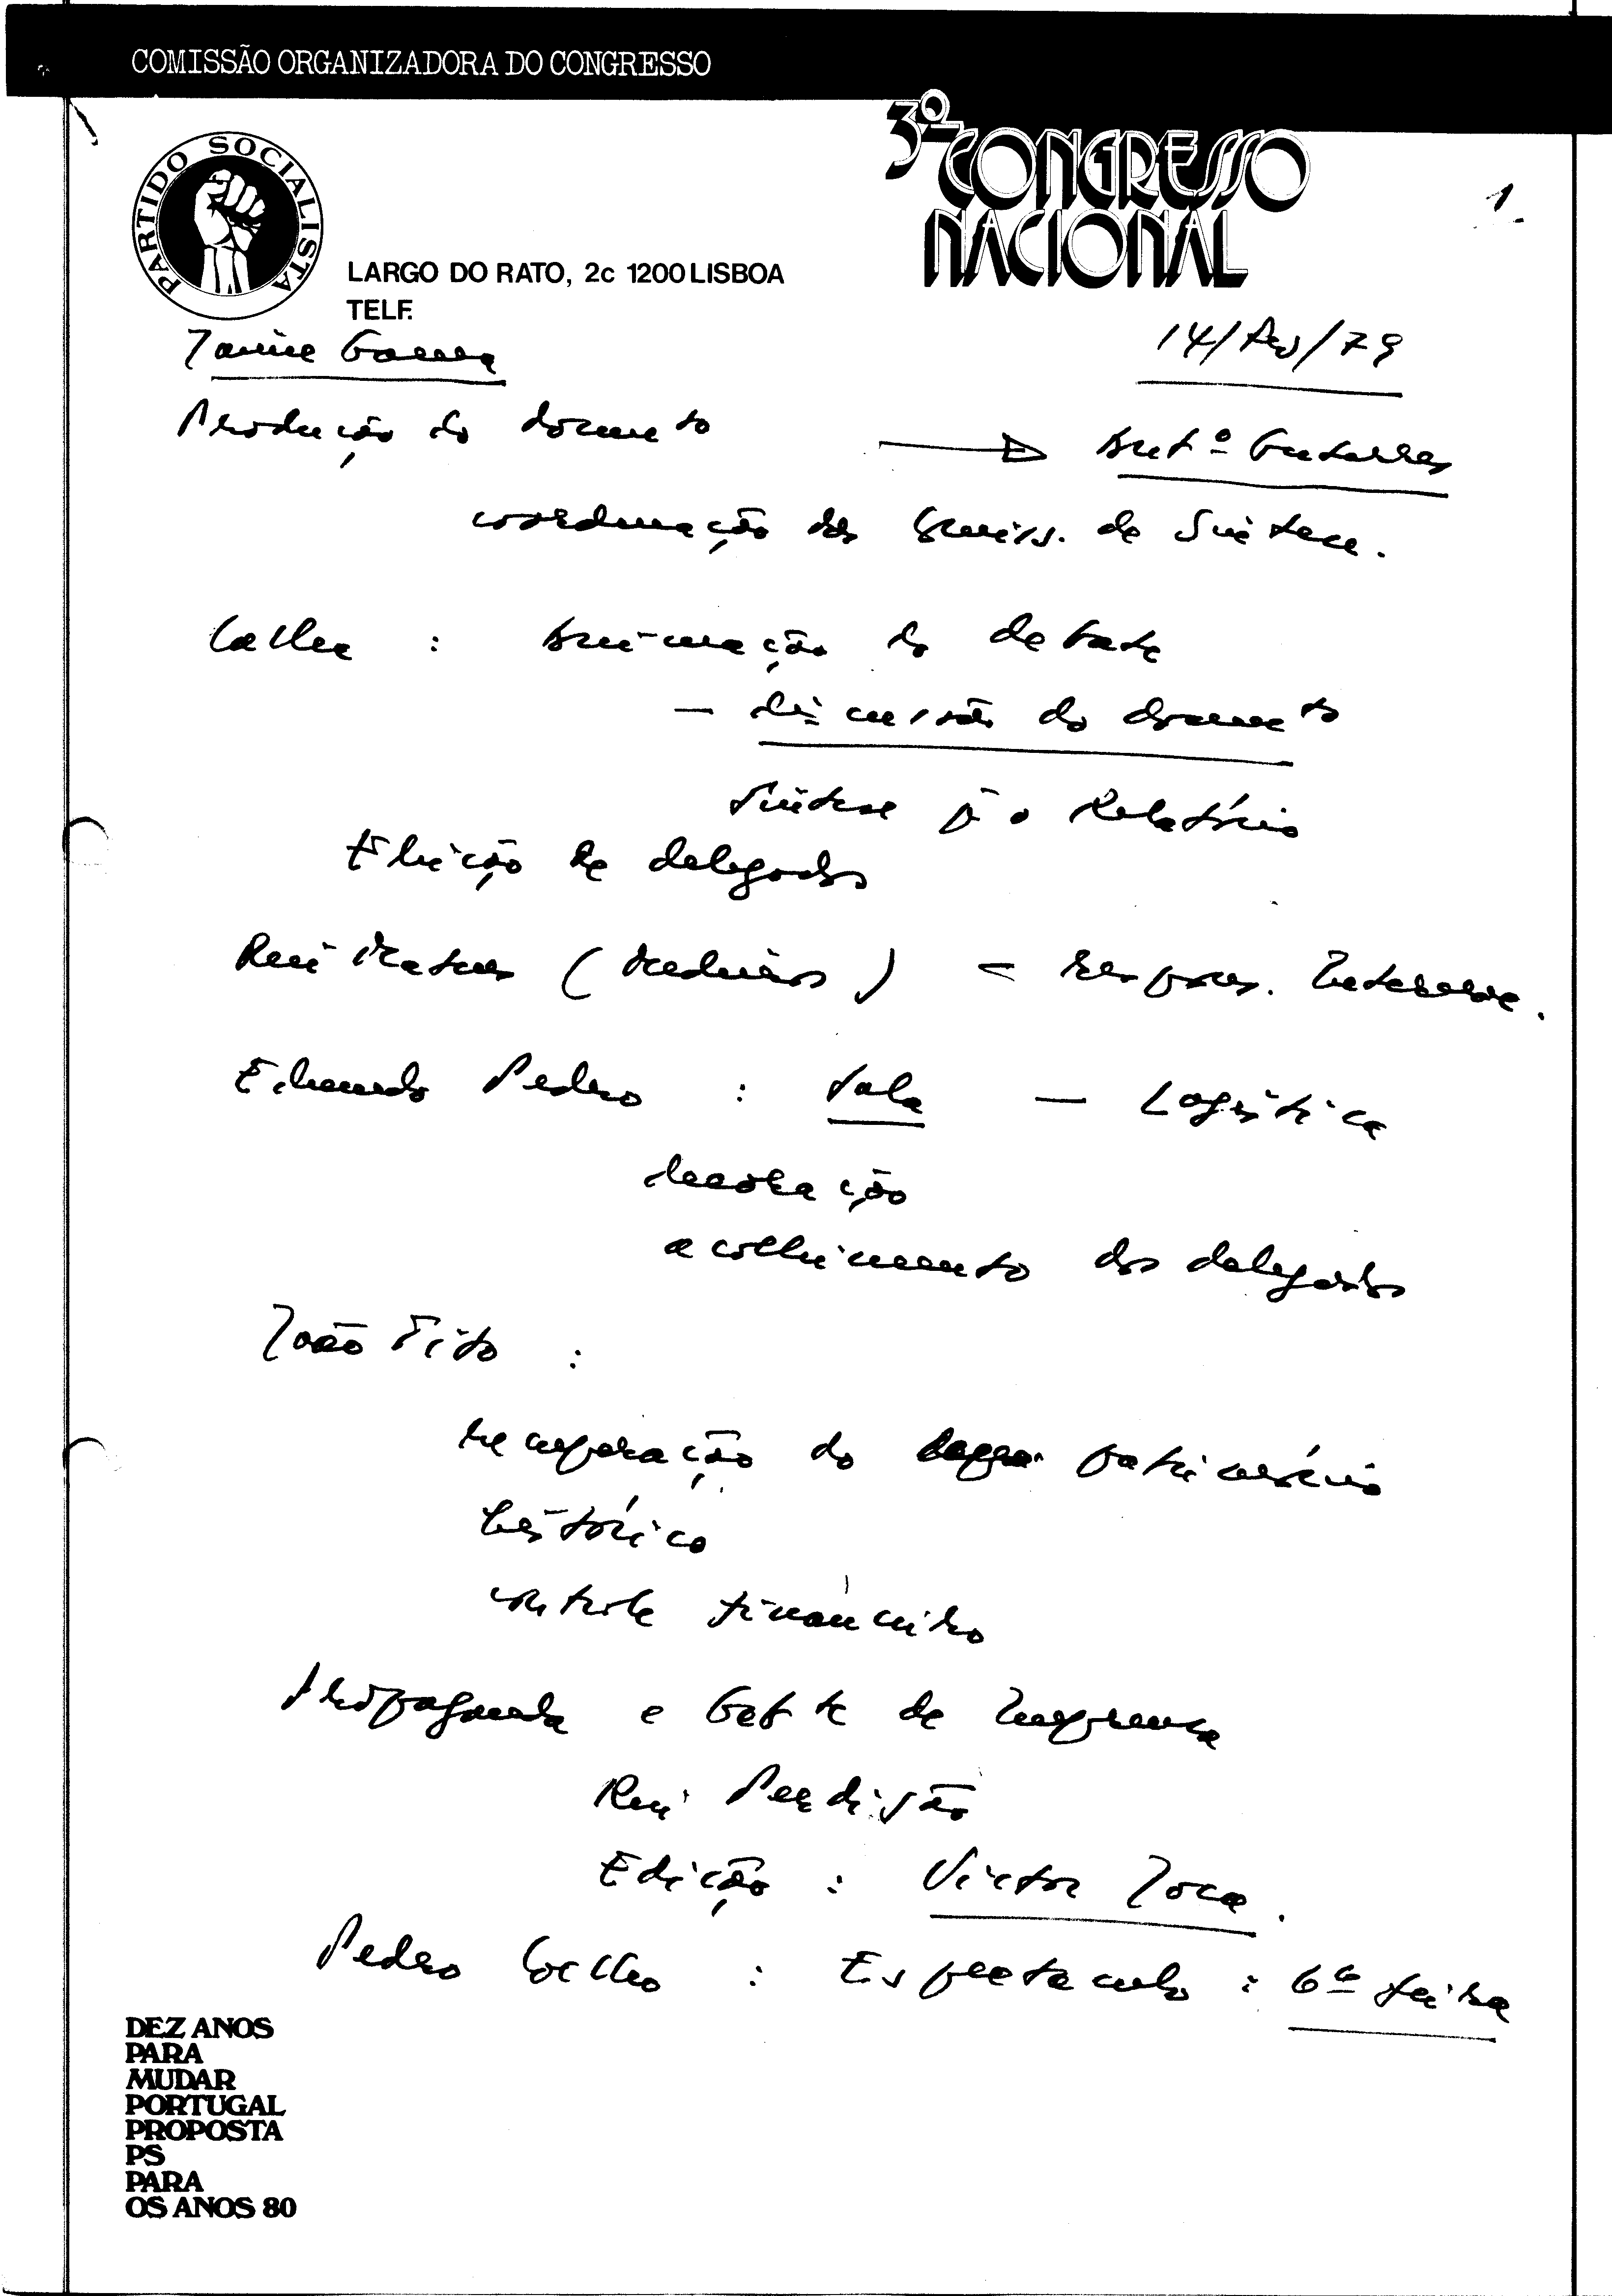 COMISSÃO ORGANIZADORA DO CONGRESSO
3º CONGRESSO
NACIONAL
1
PARTIDO SOCIALISTA
LARGO DO RATO, 2c 1200 LISBOA
TELF.
Jaime Gama
14/ /79
Produção do documento
Antº Guterres
coordenação das Comiss. de Síntese.
Catha : Animação do debate
— discussão do documento
Síntese pª o Relatório
Eleição de delegados
Rui Mateus (Medeiros) — Respons. Internac.
Eduardo Pedro : Sala — Logística
decoração
acolhimento dos delegados
João Tito :
recuperação do património
histórico
controle financeiro
Propaganda e Gabte de Imprensa
Rui Perdigão
Edição : Victor Joca.
Pedro Coelho : Espectaculo : 6ª feira
DEZ ANOS
PARA
MUDAR
PORTUGAL
PROPOSTA
PS
PARA
OS ANOS 80